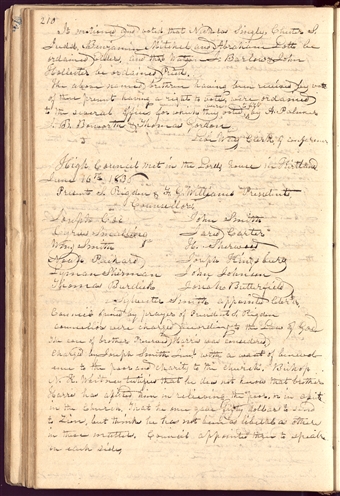 210
It motioned and voted that Nathan Tingley, Chester L.
Judd, Benjamin Mitchel and Abraham Lotts be
ordained Elders, and that Watson Barlow & John
Hollister be ordained Priest.
The above named brethren having been received by vote
of those present having a right to vote, were ordained
to the several offices for which they voted by A. Palmer
J. B. Bosworth & Thomas Gordon
Clerk of conference
High Council met in the Lords house in Kirtland
June 16th. 1836.
Present S. Rigdon & F. G. Williams Presidents
Councillors
Joseph Coe
John Smith
Cyrus Smalling
Jared Carter
Wm. Smith
H. G. Sherwood
Noah Packard
Joseph Kingsbury
Lyman Sherman
John Johnson
Thomas Burdick
Josiah Butterfield
Sylvester Smith appointed clerk
Council opened by prayer of President S. Rigdon
councillors were charged according to the Laws of God
The case of brother Preserved Harris was considered
Charged by Joseph Smith Junr. with a want of benevol-
ence to the poor and charity to the church. Bishop
N. K. Whitney testifies that he does not know that brother
Harris has assisted him in relieving the poor, or in aid
to the Church. That he one year fifty dollars to send
to Zion, but think he has not been as liberal as others
in these matters. Council appointed three to speak
on each side,